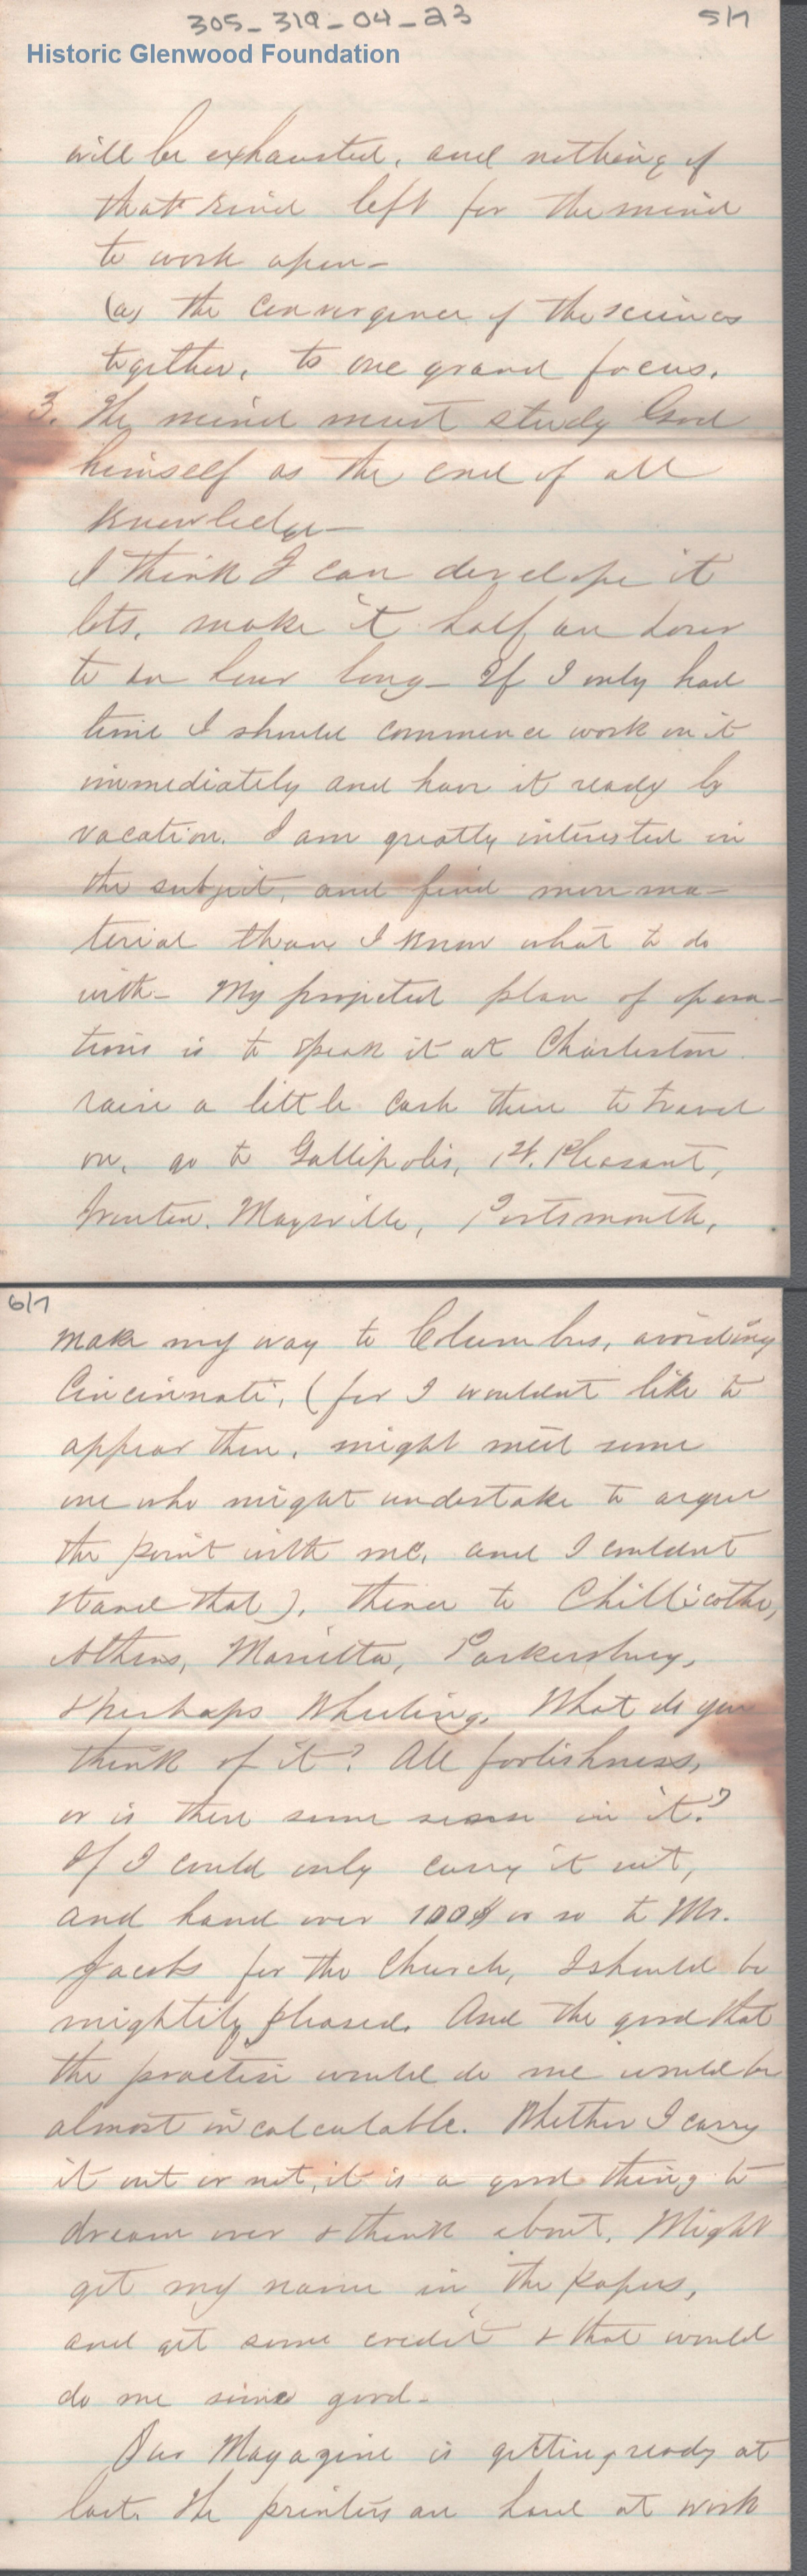 305-319-04-23
5/7
Historic Glenwood Foundation
will be exhausted, and nothing of
that kind left for the mind
to work upon-
(a) the convergence of the sciences
together, to one grand focus.
3. The mind must study God
himself as the end of all
knowledge-
I think I can develope it
lots, make it half an hour
to an hour long- If I only had
time I should commence work on it
immediately and have it ready by
vacation. I am greatly interested in
the subject, and find more ma-
terial than I know what to do
with- My projected plan of opera-
tions is to speak it at Charleston
raise a little cash there to travel
on, go to Gallipolis, Pt. Pleasant,
Ironton, Maysville, Portsmouth,
6/7
make my way to Columbus, avoiding
Cincinnati, (for I wouldnt like to
appear there, might meet some
one who might undertake to argue
the point with me, and I couldnt
stand that), thence to Chillicothe,
Athens, Marietta, Parkersburg,
& perhaps Wheeling. What do you
think of it? All foolishness,
or is there some sense in it?
If I could only carry it out,
and hand over 100$ or so to Mr.
Jacobs for the Church, I should be
mightily pleased. And the good that
the practise would do me would be
almost incalculable. Whether I carry
it out or not, it is a good thing to
dream over & think about. Might
get my name in the papers,
and get some credit & that would
do me some good-
Our Magazine is getting ready at
last. The printers are hard at work